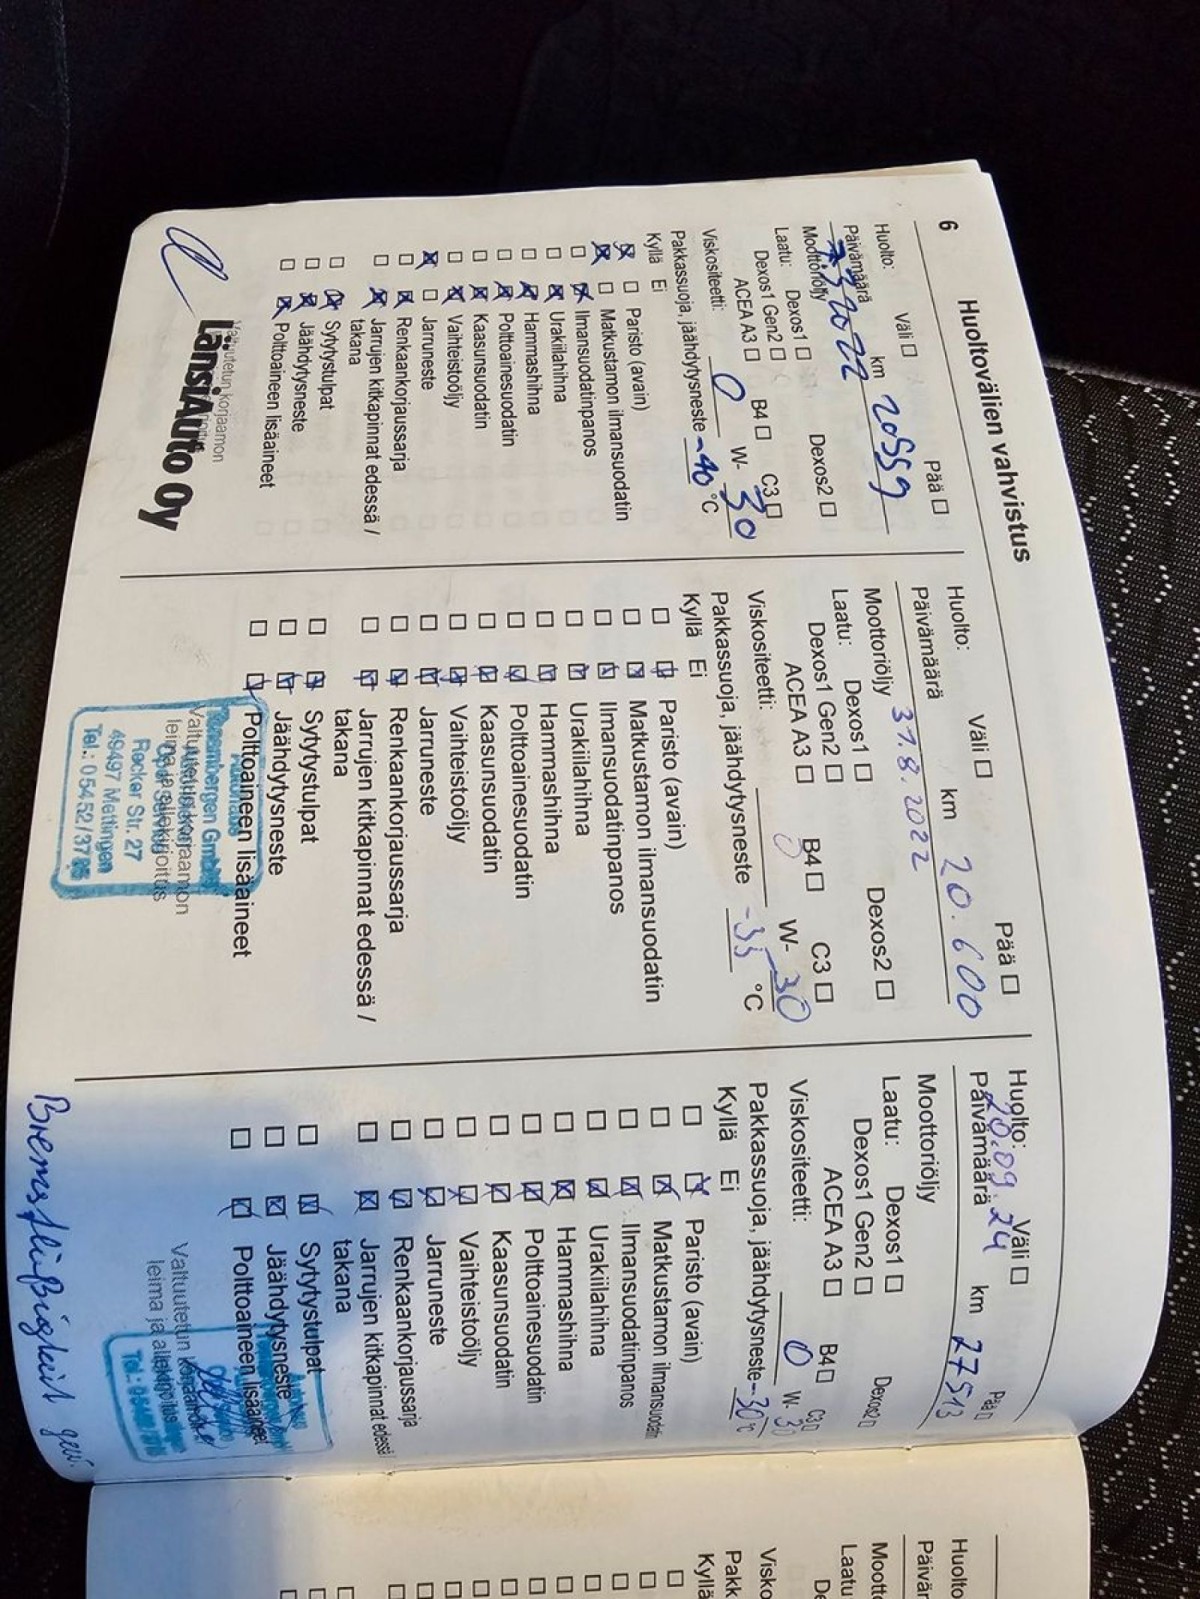 6
Huoltovälien vahvistus
Huolto: Väli ☐ Pää ☐
Päivämäärä km 20559
7.3.2022
Moottoriöljy
Laatu: Dexos1 ☐ Dexos2 ☐
Dexos1 Gen2 ☐
ACEA A3 ☐ B4 ☐ C3 ☐
Viskositeetti: 0 W- 30
Pakkassuoja, jäähdytysneste -40 °C
Kyllä Ei
☒ ☐ Paristo (avain)
☒ ☐ Matkustamon ilmansuodatin
☐ ☒ Ilmansuodatinpanos
☐ ☒ Urakiilahihna
☐ ☒ Hammashihna
☐ ☒ Polttoainesuodatin
☐ ☒ Kaasunsuodatin
☐ ☒ Vaihteistoöljy
☒ ☐ Jarruneste
☐ ☒ Renkaankorjaussarja
☐ ☒ Jarrujen kitkapinnat edessä /
takana
☐ ☒ Sytytystulpat
☐ ☒ Jäähdytysneste
☐ ☒ Polttoaineen lisäaineet
Valtuutetun korjaamon
LänsiAuto Oy
Huolto: Väli ☐ Pää ☐
Päivämäärä km 20.600
31.8.2022
Moottoriöljy
Laatu: Dexos1 ☐ Dexos2 ☐
Dexos1 Gen2 ☐
ACEA A3 ☐ B4 ☐ C3 ☐
Viskositeetti: 0 W- 30
Pakkassuoja, jäähdytysneste -35 °C
Kyllä Ei
☐ ☒ Paristo (avain)
☐ ☒ Matkustamon ilmansuodatin
☐ ☒ Ilmansuodatinpanos
☐ ☒ Urakiilahihna
☐ ☒ Hammashihna
☐ ☒ Polttoainesuodatin
☐ ☒ Kaasunsuodatin
☐ ☒ Vaihteistoöljy
☐ ☒ Jarruneste
☐ ☒ Renkaankorjaussarja
☐ ☒ Jarrujen kitkapinnat edessä /
takana
☐ ☒ Sytytystulpat
☐ ☒ Jäähdytysneste
☐ ☒ Polttoaineen lisäaineet
Valtuutetun korjaamon
leima ja allekirjoitus
GmbH
Recker Str. 27
49497 Mettingen
Tel.: 05452/37
Huolto: Väli ☐ Pää ☐
Päivämäärä km 27513
20.09.24
Moottoriöljy
Laatu: Dexos1 ☐ Dexos2 ☐
Dexos1 Gen2 ☐
ACEA A3 ☐ B4 ☐ C3 ☐
Viskositeetti: 0 W- 30
Pakkassuoja, jäähdytysneste -30 °C
Kyllä Ei
☐ ☒ Paristo (avain)
☐ ☒ Matkustamon ilmansuodatin
☐ ☒ Ilmansuodatinpanos
☐ ☒ Urakiilahihna
☐ ☒ Hammashihna
☐ ☒ Polttoainesuodatin
☐ ☒ Kaasunsuodatin
☐ ☒ Vaihteistoöljy
☐ ☒ Jarruneste
☐ ☒ Renkaankorjaussarja
☐ ☒ Jarrujen kitkapinnat edessä /
takana
☐ ☒ Sytytystulpat
☐ ☒ Jäähdytysneste
☐ ☒ Polttoaineen lisäaineet
Valtuutetun korjaamon
leima ja allekirjoitus
Bremsflüssigkeit gew.
Huolto
Päivär
Mootto
Laatu
De
Visko
Pakk
Kyllä